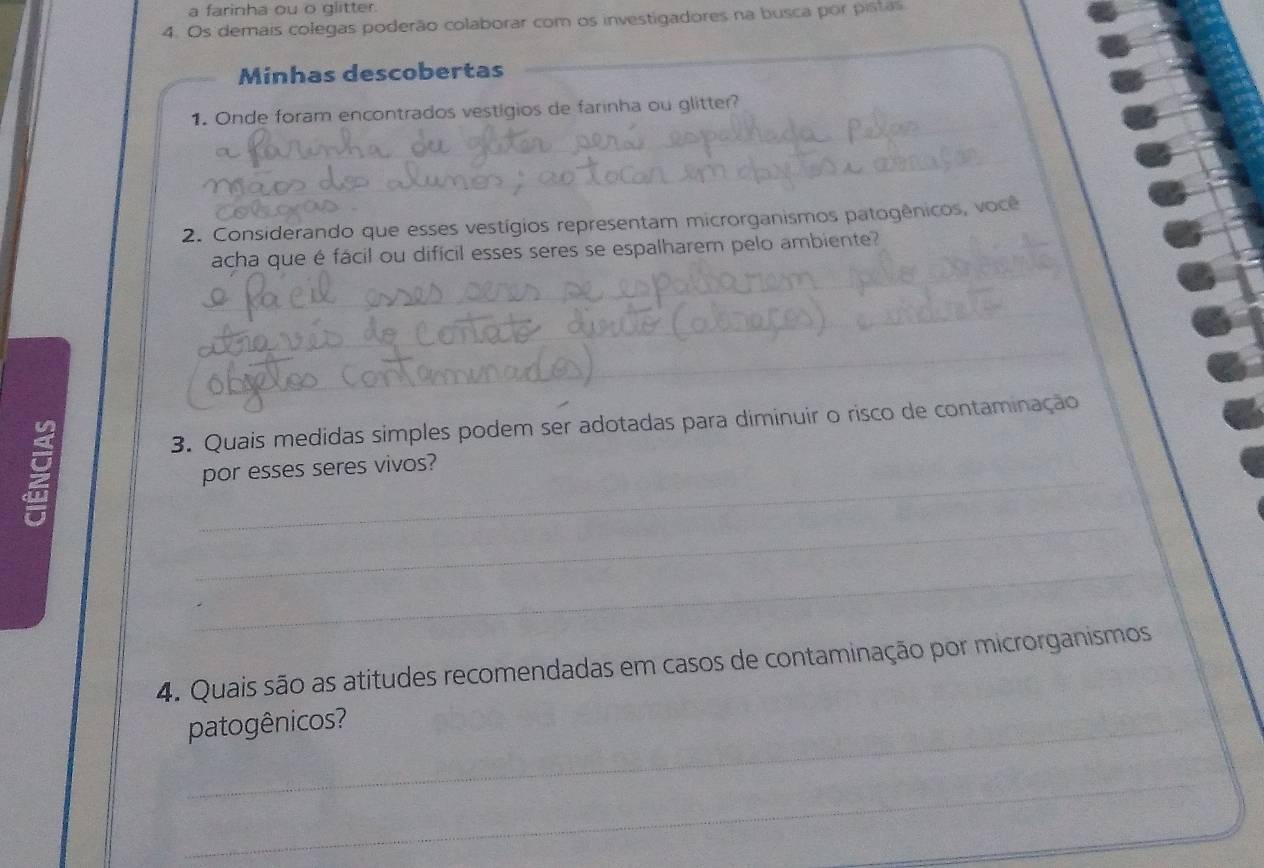 a farinha ou o glitter.
4. Os demais colegas poderão colaborar com os investigadores na busca por pistas
Minhas descobertas
1. Onde foram encontrados vestígios de farinha ou glitter?
a farinha ou gliter será espalhada Pelas
mãos dos alunos; ao tocar em
colegas.
2. Considerando que esses vestígios representam microrganismos patogênicos, você
acha que é fácil ou difícil esses seres se espalharem pelo ambiente?
é fácil esses seres se espalharem pelo ambiente
através do contato direto (abraços) e
(objetos contaminados)
3. Quais medidas simples podem ser adotadas para diminuir o risco de contaminação
por esses seres vivos?
CIÊNCIAS
4. Quais são as atitudes recomendadas em casos de contaminação por microrganismos
patogênicos?